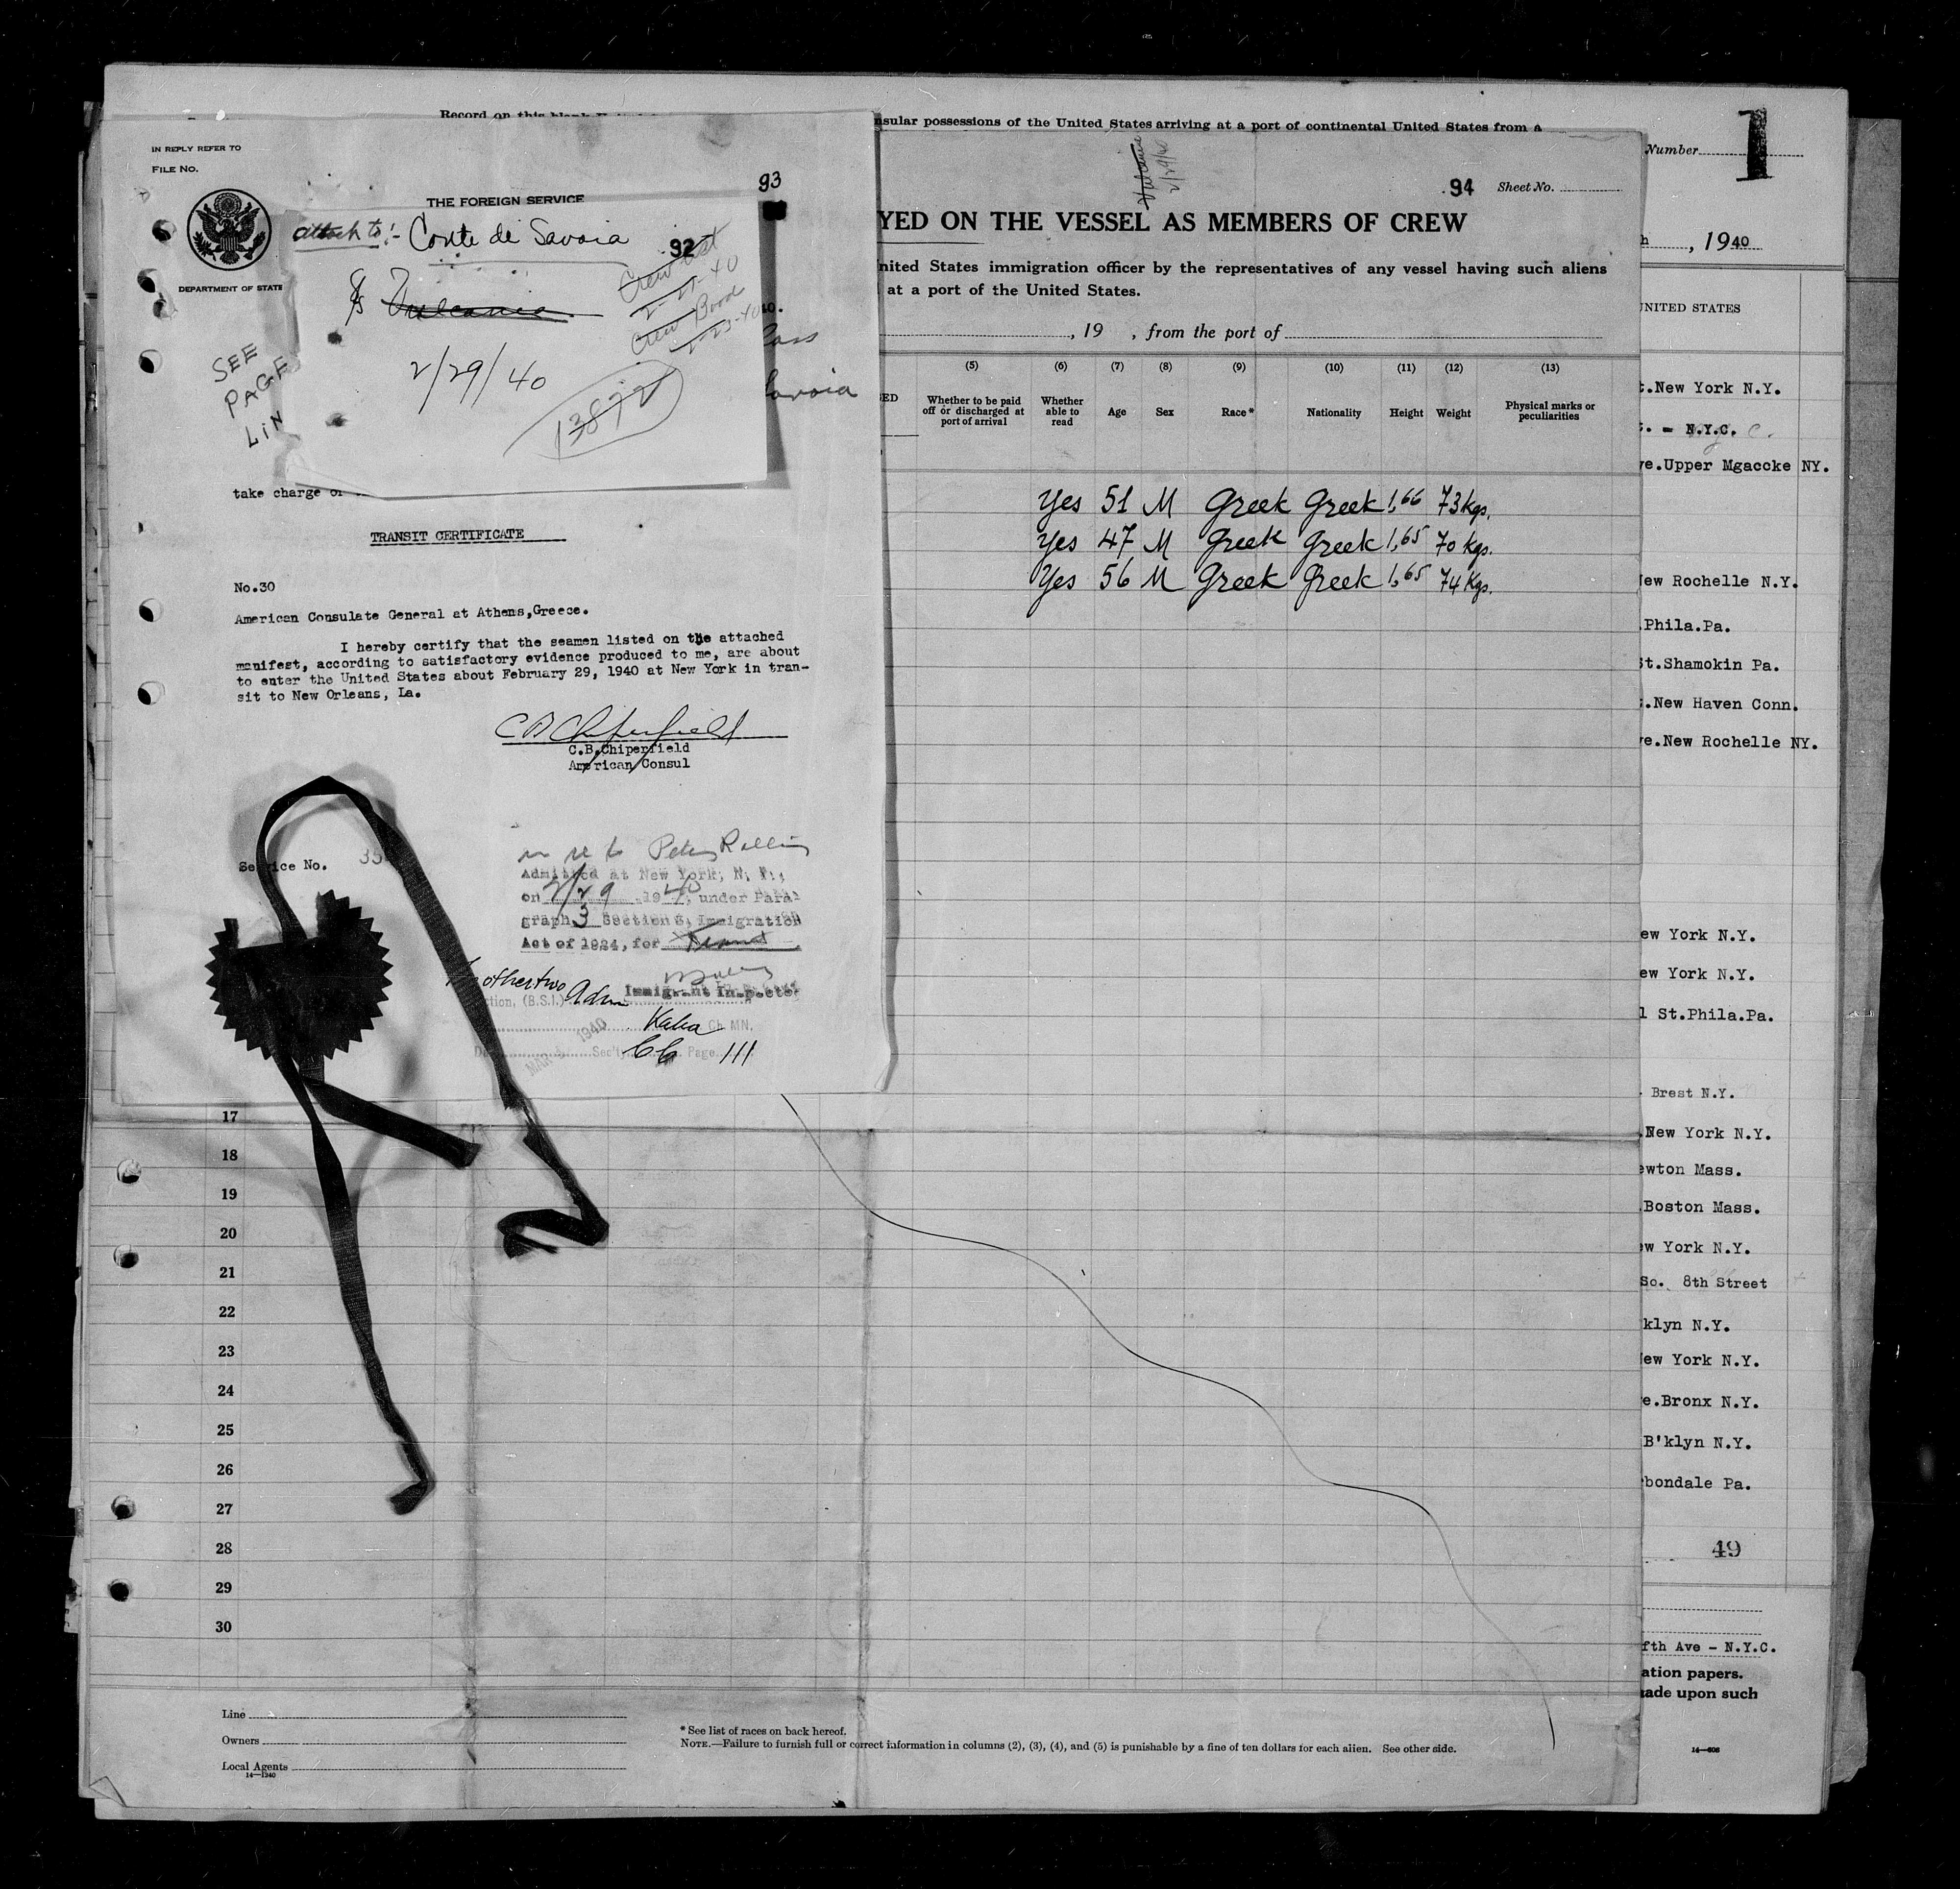 Record on this blank
nsular possessions of the United States arriving at a port of continental United States from a
Number
1
IN REPLY REFER TO
FILE NO.
THE FOREIGN SERVICE
93
DEPARTMENT OF STATE
attach to:- Conte di Savoia
92
S/S Vulcania
2/29/40
Crew List
2-29-40
13872
SEE
PAGE
LIN
40.
Savoia
take charge of
TRANSIT CERTIFICATE
No.30
American Consulate General at Athens,Greece.
I hereby certify that the seamen listed on the attached
manifest, according to satisfactory evidence produced to me, are about
to enter the United States about February 29, 1940 at New York in tran-
sit to New Orleans, La.
C.B.Chiperfield
C.B.Chiperfield
American Consul
Service No. 35
in re to Peter
Admitted at New York, N. Y.,
on 2/29 1940, under Para-
graph 3 Section 3, Immigration
Act of 1924, for Transit
Immigrant Inspector
other two Adm
ction, (B.S.I.)
Kaba Ch MN.
MAR 1940
Sec'ty Page 111
Vulcania
2/29/40
94 Sheet No.
YED ON THE VESSEL AS MEMBERS OF CREW
nited States immigration officer by the representatives of any vessel having such aliens
at a port of the United States.
, 19 , from the port of
ED
(5) (6) (7) (8) (9) (10) (11) (12) (13)
Whether to be paid off or discharged at port of arrival
Whether able to read
Age
Sex
Race*
Nationality
Height
Weight
Physical marks or peculiarities
Yes 51 M Greek Greek 1,66 73 kgs.
Yes 47 M Greek Greek 1,65 70 kgs.
Yes 56 M Greek Greek 1,65 74 kgs.
17
18
19
20
21
22
23
24
25
26
27
28
29
30
Line
Owners
Local Agents
14—1240
*See list of races on back hereof.
NOTE.—Failure to furnish full or correct information in columns (2), (3), (4), and (5) is punishable by a fine of ten dollars for each alien. See other side.
h , 1940
UNITED STATES
t.New York N.Y.
. - N.Y.C.
ve.Upper Mgaccke NY.
New Rochelle N.Y.
.Phila.Pa.
St.Shamokin Pa.
.New Haven Conn.
ve.New Rochelle NY.
ew York N.Y.
ew York N.Y.
l St.Phila.Pa.
Brest N.Y.
.New York N.Y.
ewton Mass.
.Boston Mass.
ew York N.Y.
So. 8th Street
klyn N.Y.
New York N.Y.
e.Bronx N.Y.
B'klyn N.Y.
rbondale Pa.
49
fth Ave - N.Y.C.
ation papers.
made upon such
14—606